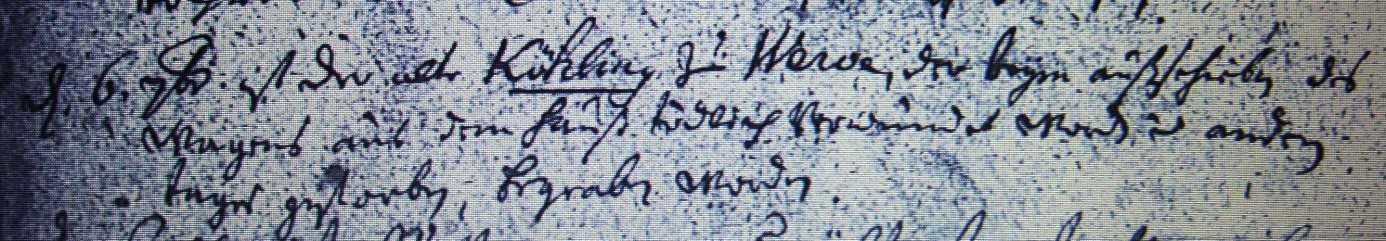 d. 6. 7br. ist der alte Köhling zu Werve, der beym aufschieben des
Wagens aus dem Hauß tödlich verwundet word, u. andern
tages gestorben, begraben worden.